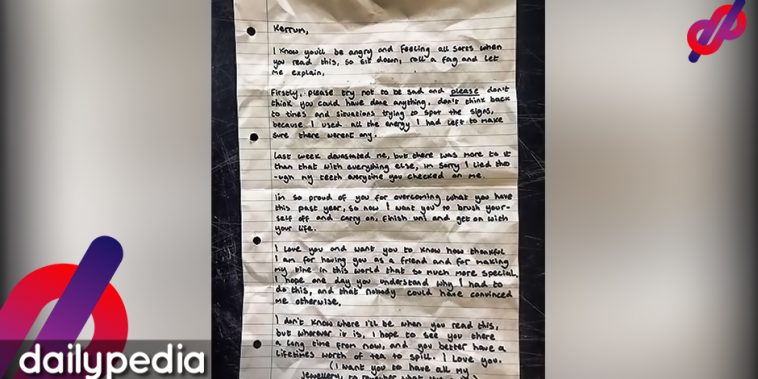 Kerrun,
I know you'll be angry and feeling all sorts when
you read this, so sit down, roll a fag and let
me explain,
Firstly, please try not to be sad and please don't
think you could have done anything, don't think back
to times and situations trying to spot the signs,
because I used all the energy I had left to make
sure there weren't any.
Last week devastated me, but there was more to it
than that with everything else, im sorry I lied thro
-ugh my teeth everytime you checked on me.
I'm so proud of you for overcoming what you have
this past year, so now I want you to brush your-
self off and carry on, finish uni and get on with
your life.
I love you and want you to know how thankful
I am for having you as a friend and for making
my time in this world that so much more special.
I hope one day you understand why I had to
do this, and that nobody could have convinced
me otherwise.
I don't know where I'll be when you read this,
but wherever it is, I hope to see you there
a long time from now, and you better have a
lifetimes worth of tea to spill. I love you.
(I want you to have all my
jewellery, to
dailypedia